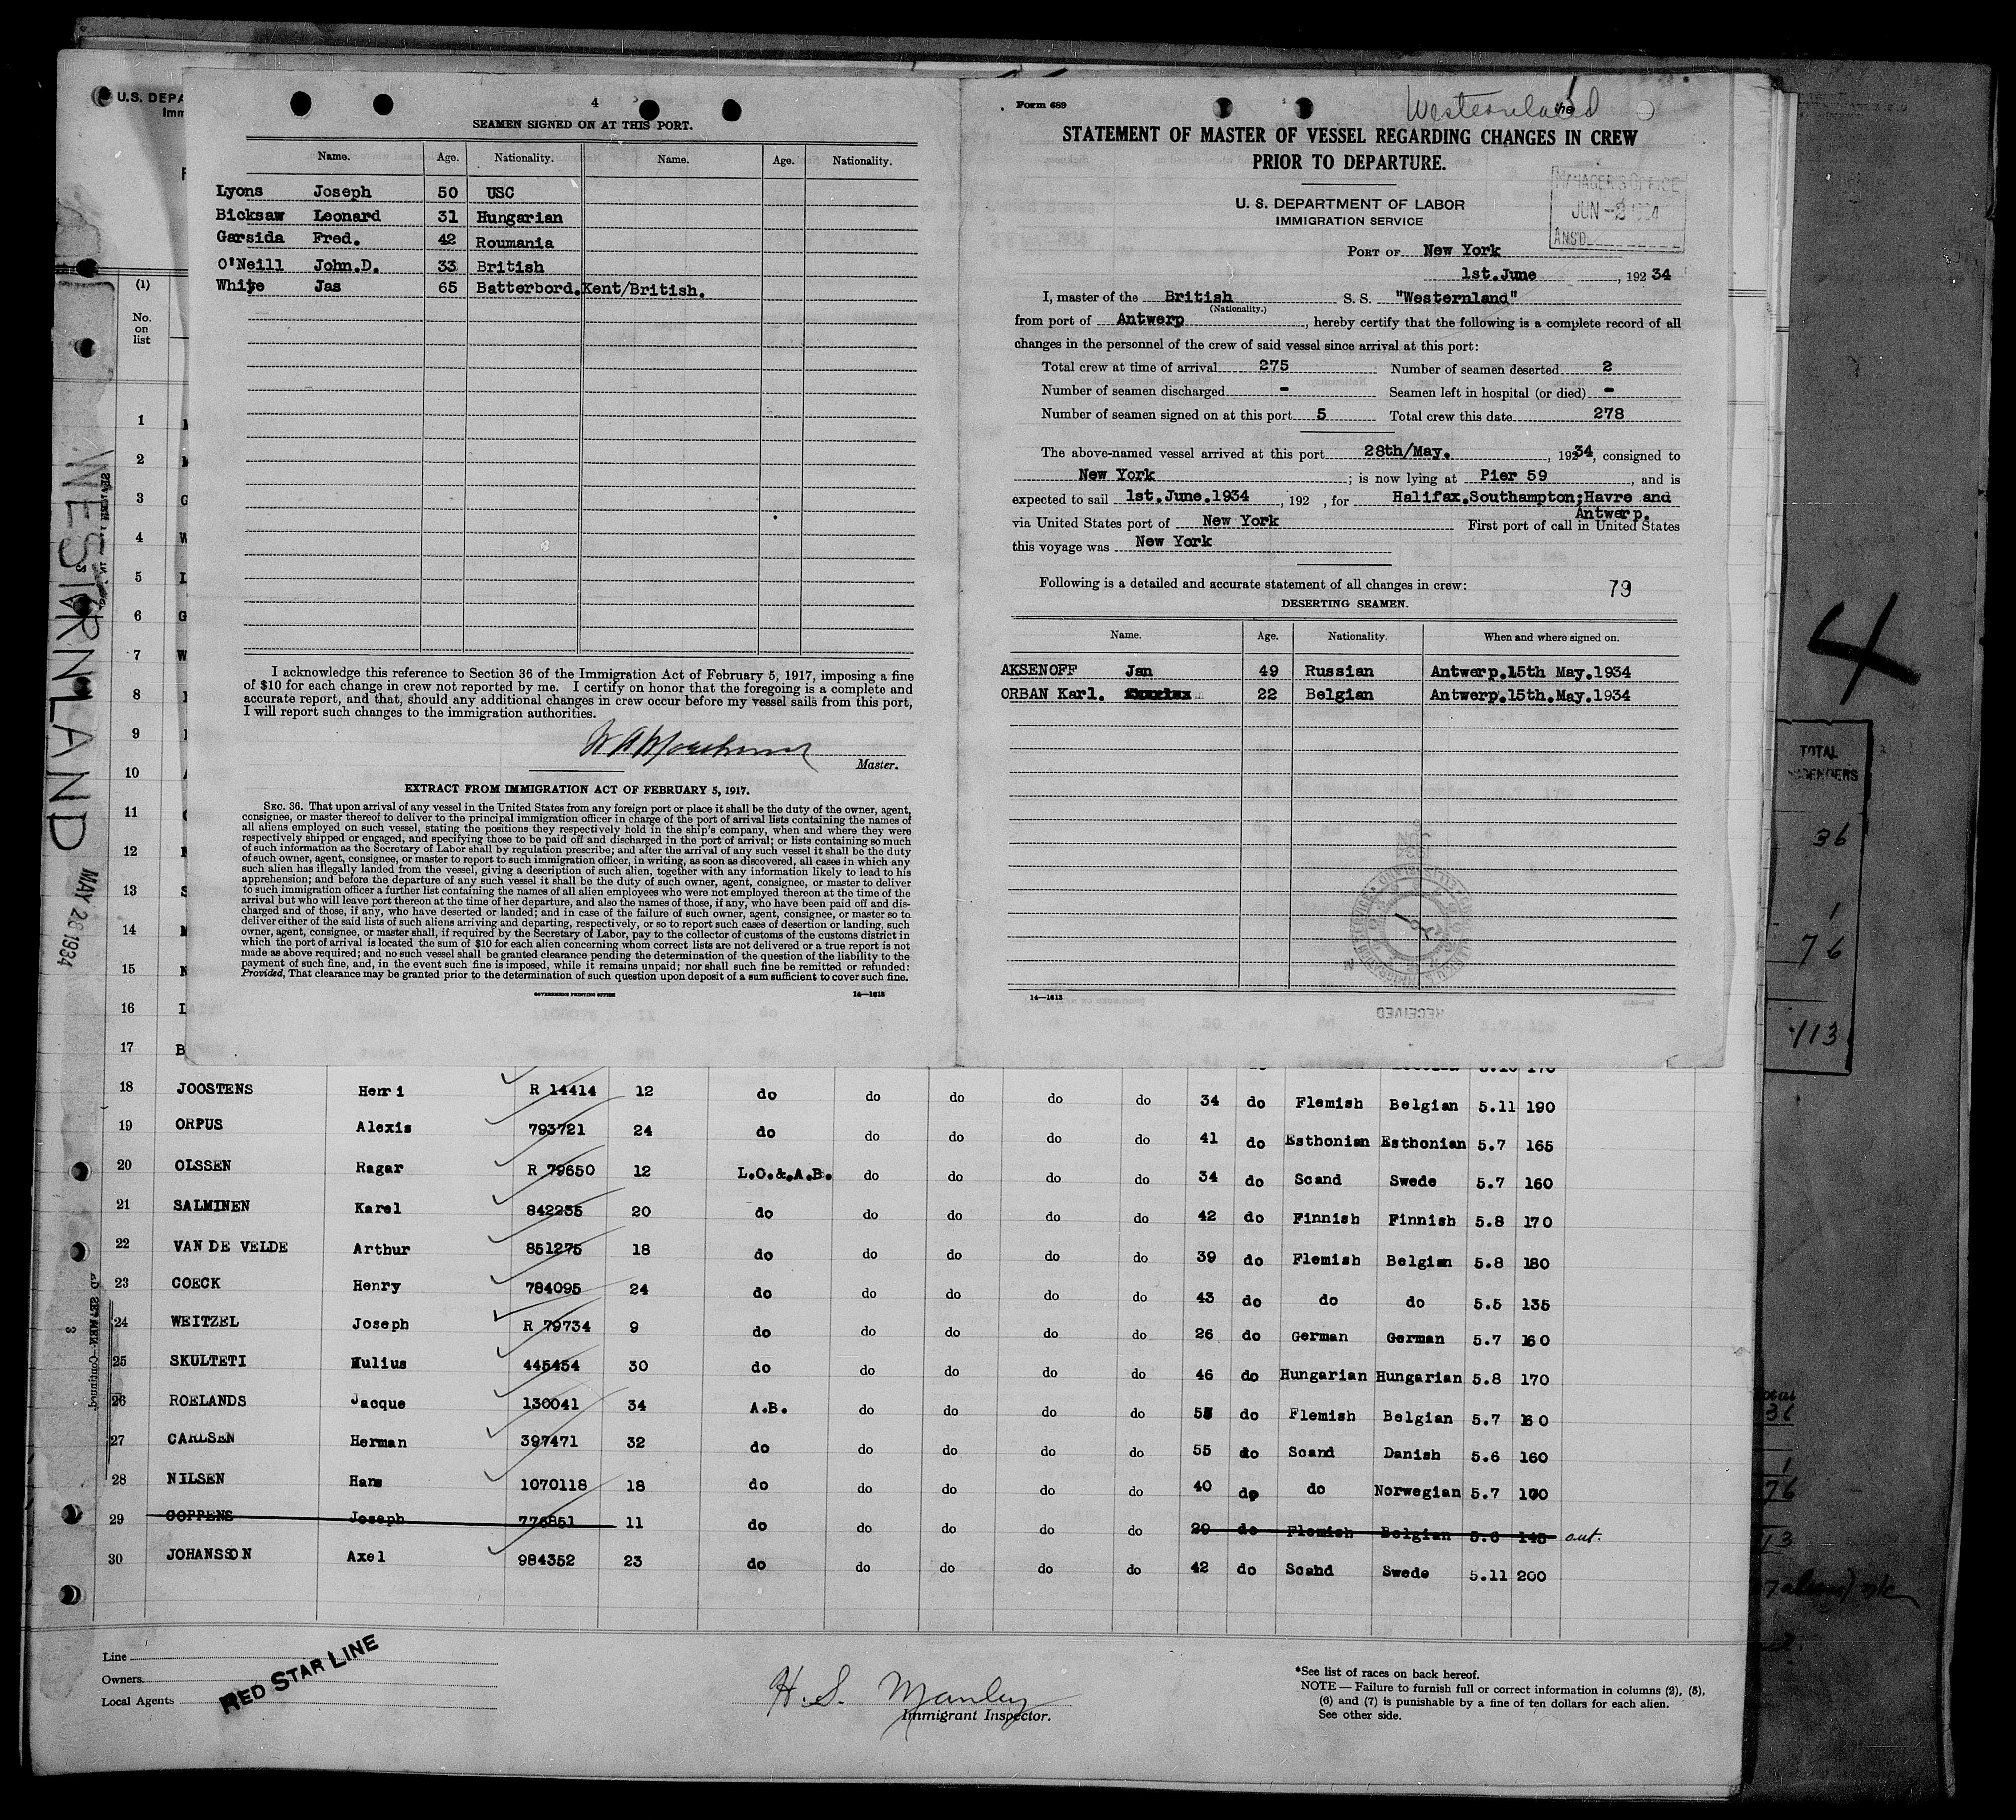 4
SEAMEN SIGNED ON AT THIS PORT.
Name. Age. Nationality. Name. Age. Nationality.
Lyons Joseph 50 USC
Bicksaw Leonard 31 Hungarian
Garsida Fred. 42 Roumania
O'Neill John.D. 33 British
White Jas 65 Batterbord.Kent/British.
I acknowledge this reference to Section 36 of the Immigration Act of February 5, 1917, imposing a fine
of $10 for each change in crew not reported by me. I certify on honor that the foregoing is a complete and
accurate report, and that, should any additional changes in crew occur before my vessel sails from this port,
I will report such changes to the immigration authorities.
Master.
EXTRACT FROM IMMIGRATION ACT OF FEBRUARY 5, 1917.
SEC. 36. That upon arrival of any vessel in the United States from any foreign port or place it shall be the duty of the owner, agent,
consignee, or master thereof to deliver to the principal immigration officer in charge of the port of arrival lists containing the names of
all aliens employed on such vessel, stating the positions they respectively hold in the ship's company, when and where they were
respectively shipped or engaged, and specifying those to be paid off and discharged in the port of arrival; or lists containing so much
of such information as the Secretary of Labor shall by regulation prescribe; and after the arrival of any such vessel it shall be the duty
of such owner, agent, consignee, or master to report to such immigration officer, in writing, as soon as discovered, all cases in which any
such alien has illegally landed from the vessel, giving a description of such alien, together with any information likely to lead to his
apprehension; and before the departure of any such vessel it shall be the duty of such owner, agent, consignee, or master to deliver
to such immigration officer a further list containing the names of all alien employees who were not employed thereon at the time of the
arrival but who will leave port thereon at the time of her departure, and also the names of those, if any, who have been paid off and dis-
charged and of those, if any, who have deserted or landed; and in case of the failure of such owner, agent, consignee, or master so to
deliver either of the said lists of such aliens arriving and departing, respectively, or so to report such cases of desertion or landing, such
owner, agent, consignee, or master shall, if required by the Secretary of Labor, pay to the collector of customs of the customs district in
which the port of arrival is located the sum of $10 for each alien concerning whom correct lists are not delivered or a true report is not
made as above required; and no such vessel shall be granted clearance pending the determination of the question of the liability to the
payment of such fine, and, in the event such fine is imposed, while it remains unpaid; nor shall such fine be remitted or refunded:
Provided, That clearance may be granted prior to the determination of such question upon deposit of a sum sufficient to cover such fine.
GOVERNMENT PRINTING OFFICE 14—1613
Form 689
Westernland
the
STATEMENT OF MASTER OF VESSEL REGARDING CHANGES IN CREW
PRIOR TO DEPARTURE.
MANAGER'S OFFICE
JUN -2 1934
ANS'D
U. S. DEPARTMENT OF LABOR
IMMIGRATION SERVICE
PORT OF New York
1st.June , 192 34
I, master of the British S. S. "Westernland"
(Nationality.)
from port of Antwerp , hereby certify that the following is a complete record of all
changes in the personnel of the crew of said vessel since arrival at this port:
Total crew at time of arrival 275 Number of seamen deserted 2
Number of seamen discharged - Seamen left in hospital (or died) -
Number of seamen signed on at this port 5 Total crew this date 278
The above-named vessel arrived at this port 28th/May. , 192 34, consigned to
New York ; is now lying at Pier 59 , and is
expected to sail 1st.June.1934 , 192 , for Halifax.Southampton;Havre and
Antwerp.
via United States port of New York First port of call in United States
this voyage was New York
Following is a detailed and accurate statement of all changes in crew: 79
DESERTING SEAMEN.
Name. Age. Nationality. When and where signed on.
AKSENOFF Jan 49 Russian Antwerp.15th May.1934
ORBAN Karl. 22 Belgian Antwerp.15th.May.1934
14—1613
RECEIVED
U.S. DEPA
Imm
(1)
No.
on
list
1
2
3 G
4 W
5 I
6 G
7 W
8
9
10
11
12
13 S
14
15 N
16
17 B
18 JOOSTENS Henri R 14414 12 do do do do do 34 do Flemish Belgian 5.11 190
19 ORPUS Alexis 793721 24 do do do do do 41 do Esthonian Esthonian 5.7 165
20 OLSSEN Ragar R 79650 12 L.O.&.A.B. do do do do 34 do Scand Swede 5.7 160
21 SALMINEN Karel 842235 20 do do do do do 42 do Finnish Finnish 5.8 170
22 VAN DE VELDE Arthur 851275 18 do do do do do 39 do Flemish Belgian 5.8 180
23 COECK Henry 784095 24 do do do do do 43 do do do 5.5 135
24 WEITZEL Joseph R 79734 9 do do do do do 26 do German German 5.7 160
25 SKULTETI Mulius 445454 30 do do do do do 46 do Hungarian Hungarian 5.8 170
26 ROELANDS Jacque 130041 34 A.B. do do do do 55 do Flemish Belgian 5.7 160
27 CARLSEN Herman 397471 32 do do do do do 55 do Scand Danish 5.6 160
28 NILSEN Hans 1070118 18 do do do do do 40 do do Norwegian 5.7 170
29 COPPENS Joseph 776851 11 do do do do do 29 do Flemish Belgian 5.6 145 out.
30 JOHANSSON Axel 984352 23 do do do do do 42 do Scand Swede 5.11 200
Line
Owners
Local Agents
RED STAR LINE
H. S. Manley
Immigrant Inspector.
*See list of races on back hereof.
NOTE — Failure to furnish full or correct information in columns (2), (5),
(6) and (7) is punishable by a fine of ten dollars for each alien.
See other side.
WESTERNLAND
MAY 28 1934
3
4
TOTAL
36
1
76
113